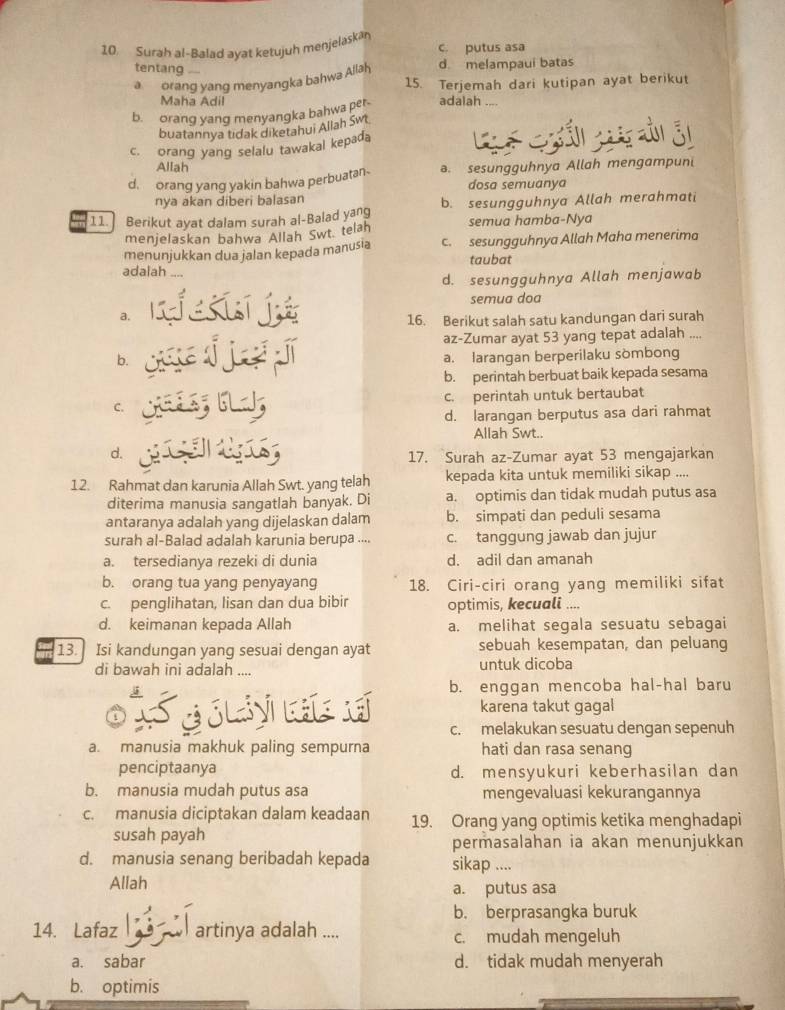 10. Surah al-Balad ayat ketujuh menjelaskan
tentang ....
a. orang yang menyangka bahwa Allah
Maha Adil
b. orang yang menyangka bahwa per-
buatannya tidak diketahui Allah Swt.
c. orang yang selalu tawakal kepada
Allah
d. orang yang yakin bahwa perbuatan-
nya akan diberi balasan
11. Berikut ayat dalam surah al-Balad yang
menjelaskan bahwa Allah Swt. telah
menunjukkan dua jalan kepada manusia
adalah ....
a. يَقُوْلُ اَهْلَكْتُ مَالًا لُّبَدًا
b. اَلَمْ نَجْعَلْ لَّهٗ عَيْنَيْنِ
c. وَلِسَانًا وَّشَفَتَيْنِ
d. وَهَدَيْنٰهُ النَّجْدَيْنِ
12. Rahmat dan karunia Allah Swt. yang telah
diterima manusia sangatlah banyak. Di
antaranya adalah yang dijelaskan dalam
surah al-Balad adalah karunia berupa ....
a. tersedianya rezeki di dunia
b. orang tua yang penyayang
c. penglihatan, lisan dan dua bibir
d. keimanan kepada Allah
13. Isi kandungan yang sesuai dengan ayat
di bawah ini adalah ....
لَقَدْ خَلَقْنَا الْاِنْسَانَ فِيْ كَبَدٍۗ ٤
a. manusia makhuk paling sempurna
penciptaanya
b. manusia mudah putus asa
c. manusia diciptakan dalam keadaan
susah payah
d. manusia senang beribadah kepada
Allah
14. Lafaz اَسْرَفُوْا artinya adalah ....
a. sabar
b. optimis
c. putus asa
d. melampaui batas
15. Terjemah dari kutipan ayat berikut
adalah ....
اِنَّ اللّٰهَ يَغْفِرُ الذُّنُوْبَ جَمِيْعًا
a. sesungguhnya Allah mengampuni
dosa semuanya
b. sesungguhnya Allah merahmati
semua hamba-Nya
c. sesungguhnya Allah Maha menerima
taubat
d. sesungguhnya Allah menjawab
semua doa
16. Berikut salah satu kandungan dari surah
az-Zumar ayat 53 yang tepat adalah ....
a. larangan berperilaku sombong
b. perintah berbuat baik kepada sesama
c. perintah untuk bertaubat
d. larangan berputus asa dari rahmat
Allah Swt..
17. Surah az-Zumar ayat 53 mengajarkan
kepada kita untuk memiliki sikap ....
a. optimis dan tidak mudah putus asa
b. simpati dan peduli sesama
c. tanggung jawab dan jujur
d. adil dan amanah
18. Ciri-ciri orang yang memiliki sifat
optimis, kecuali ....
a. melihat segala sesuatu sebagai
sebuah kesempatan, dan peluang
untuk dicoba
b. enggan mencoba hal-hal baru
karena takut gagal
c. melakukan sesuatu dengan sepenuh
hati dan rasa senang
d. mensyukuri keberhasilan dan
mengevaluasi kekurangannya
19. Orang yang optimis ketika menghadapi
permasalahan ia akan menunjukkan
sikap ....
a. putus asa
b. berprasangka buruk
c. mudah mengeluh
d. tidak mudah menyerah